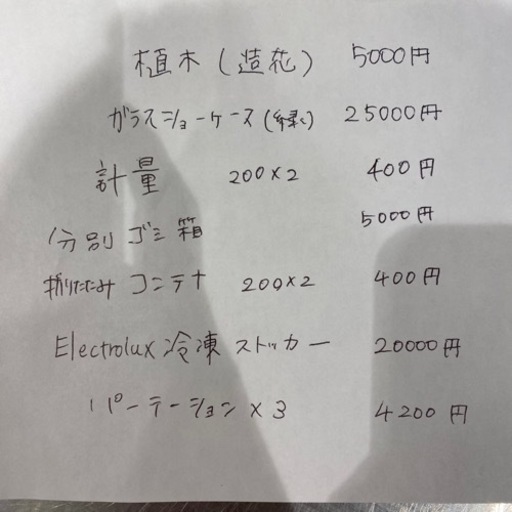 植木(造花) 5000円
ガラスショーケース(緑) 25000円
計量 200×2 400円
分別ゴミ箱 5000円
折りたたみコンテナ 200×2 400円
Electrolux冷凍ストッカー 20000円
パーテーション×3 4200円